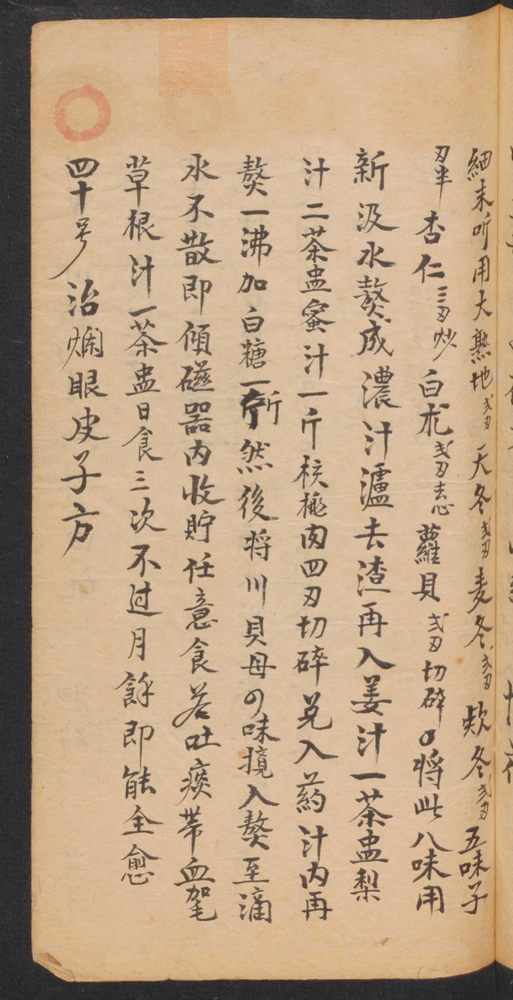 細末听用大熟地弍刄天冬弍刄麦冬弍刄欵冬弍刄五味子
刄半杏仁三刄炒白朮弍刄蘿貝弍刄切碎将此八味用
新汲水熬成濃汁濾去渣再入姜汁一茶盅梨
汁二茶盅蜜汁一斤核桃肉四刄切碎兑入药汁内再
熬一沸加白糖一斤然後将川貝母の味搅入熬至滴
水不散即傾磁器内收貯任意食若吐痰带血加毛
草根汁一茶盅日食三次不过月餘即能全愈
四十号治爛眼皮子方